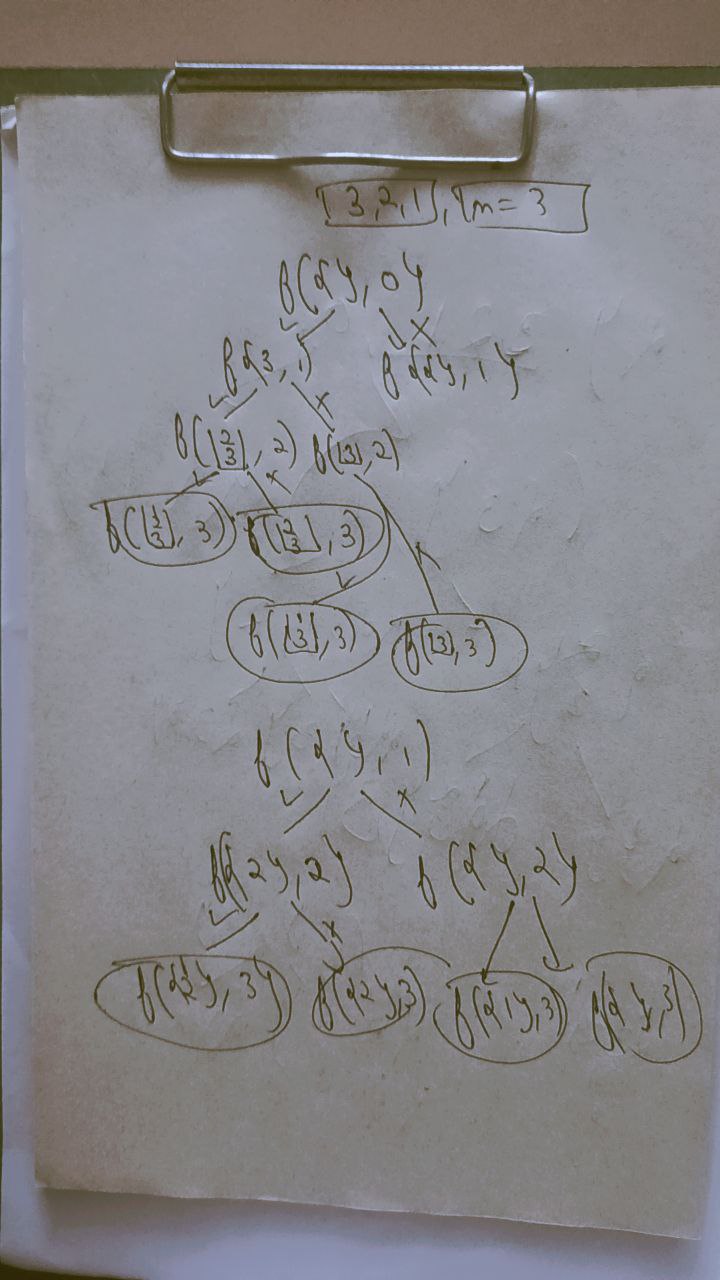 [3,2,1], n = 3
f({}, 0)
f({3, 1) f({}, 1}
f([2 3], 2) f([3], 2)
f([1 2 3], 3) f([2 3], 3)
f([1 3], 3) f([3], 3)
f({}, 1)
f({2}, 2} f({}, 2}
f({1 2}, 3} f({2},3) f({1},3) f({},3)